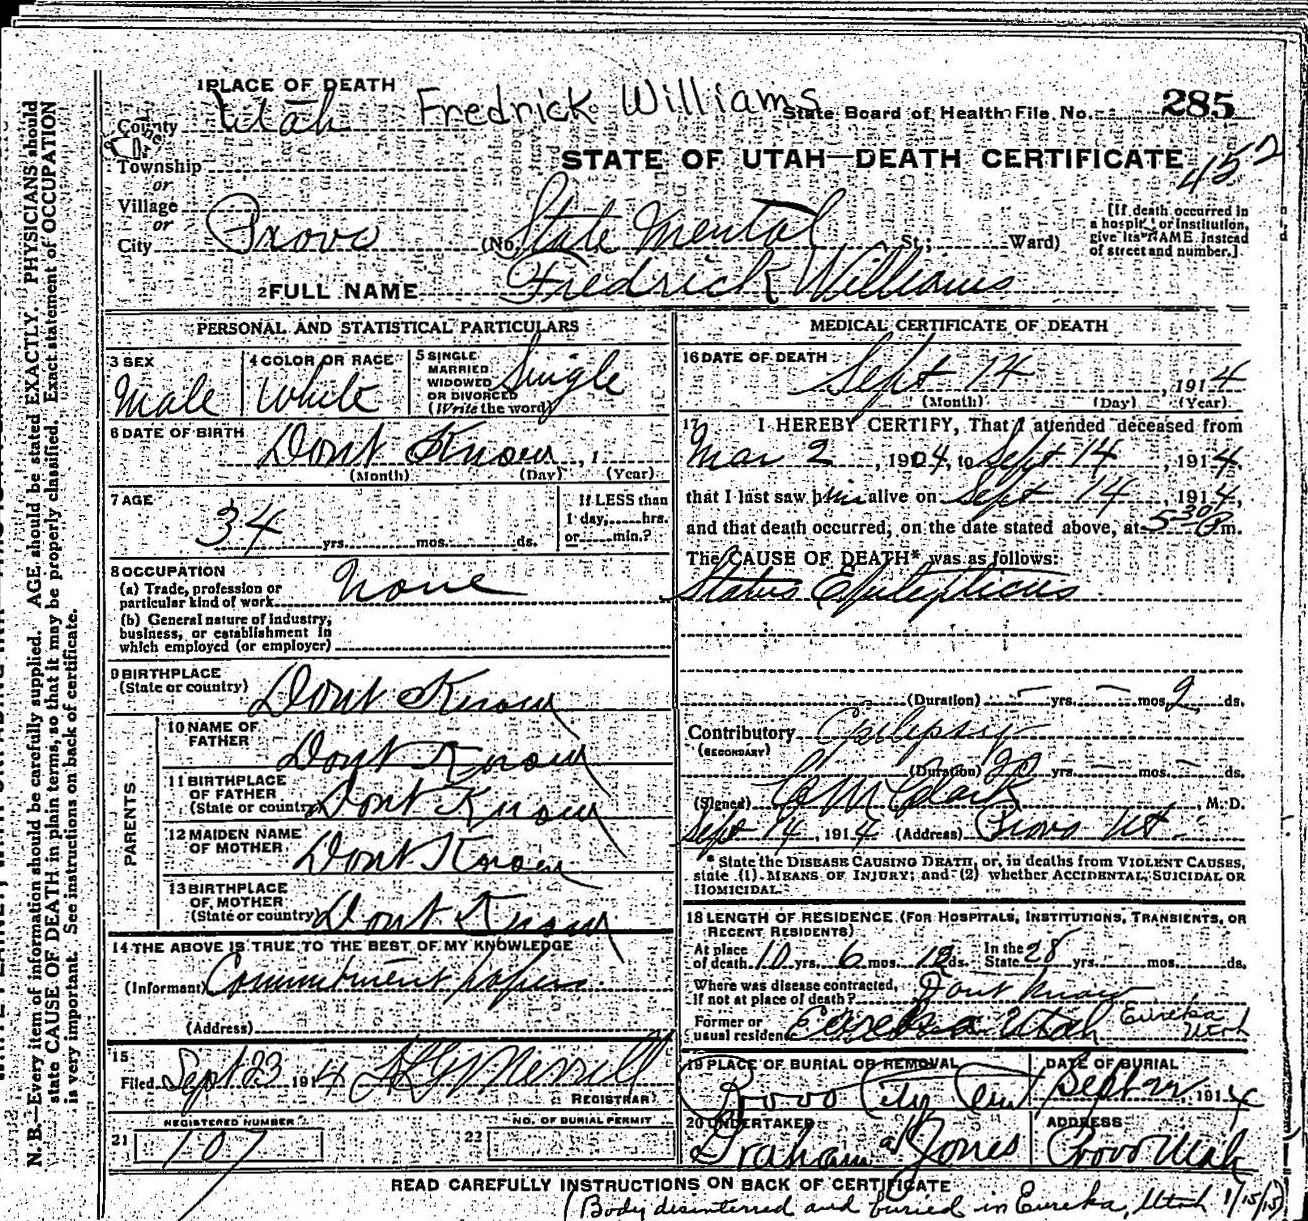 1 PLACE OF DEATH
Fredrick Williams
State Board of Health File No. 285
County Utah
STATE OF UTAH—DEATH CERTIFICATE
452
Township
or
Village
or
City Provo (No. State Mental St; Ward)
[If death occurred in
a hospital or institution,
give its NAME instead
of street and number.]
2 FULL NAME Fredrick Williams
PERSONAL AND STATISTICAL PARTICULARS
3 SEX
Male
4 COLOR OR RACE
White
5 SINGLE
MARRIED
WIDOWED
OR DIVORCED
(Write the word)
Single
6 DATE OF BIRTH
Dont Know, 1
(Month) (Day) (Year)
7 AGE
34 yrs. mos. ds.
If LESS than
1 day, hrs.
or min.?
8 OCCUPATION
(a) Trade, profession or
particular kind of work None
(b) General nature of industry,
business, or establishment in
which employed (or employer)
9 BIRTHPLACE
(State or country) Dont Know
PARENTS
10 NAME OF
FATHER Dont Know
11 BIRTHPLACE
OF FATHER
(State or country) Dont Know
12 MAIDEN NAME
OF MOTHER Dont Know
13 BIRTHPLACE
OF MOTHER
(State or country) Dont Know
14 THE ABOVE IS TRUE TO THE BEST OF MY KNOWLEDGE
(Informant) Commitment papers
(Address)
15
Filed Sept 23 1914 Merrill
REGISTRAR
REGISTERED NUMBER
21 107
NO. OF BURIAL PERMIT
22
MEDICAL CERTIFICATE OF DEATH
16 DATE OF DEATH
Sept 14, 1914
(Month) (Day) (Year)
17 I HEREBY CERTIFY, That I attended deceased from
Mar 2, 1904, to Sept 14, 1914
that I last saw him alive on Sept 14, 1914,
and that death occurred, on the date stated above, at 5 30 P m.
The CAUSE OF DEATH* was as follows:
Status Epilepticus
(Duration) – yrs. – mos. 2 ds.
Contributory Epilepsy
(SECONDARY)
(Duration) 20 yrs. – mos. – ds.
(Signed) Clark, M. D.
Sept 14, 1914 (Address) Provo Ut.
* State the DISEASE CAUSING DEATH, or, in deaths from VIOLENT CAUSES,
state (1) MEANS OF INJURY; and (2) whether ACCIDENTAL, SUICIDAL OR
HOMICIDAL.
18 LENGTH OF RESIDENCE (FOR HOSPITALS, INSTITUTIONS, TRANSIENTS, OR
RECENT RESIDENTS)
At place
of death 10 yrs. 6 mos. 12 ds. In the
State 28 yrs. mos. ds.
Where was disease contracted,
if not at place of death? Dont Know
Former or
usual residence Eureka Utah Eureka
Utah
19 PLACE OF BURIAL OR REMOVAL
Provo City Cem
DATE OF BURIAL
Sept 22, 1914
20 UNDERTAKER
Graham Jones
ADDRESS
Provo Utah
READ CAREFULLY INSTRUCTIONS ON BACK OF CERTIFICATE
(Body disinterred and buried in Eureka, Utah 1/15/15)
N. B.—Every item of information should be carefully supplied. AGE should be stated EXACTLY. PHYSICIANS should
state CAUSE OF DEATH in plain terms, so that it may be properly classified. Exact statement of OCCUPATION
is very important. See instructions on back of certificate.